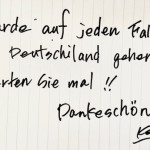 erde auf jeden Fal
Deutschiland gehen
rten Sie mal !!
Dankeschön